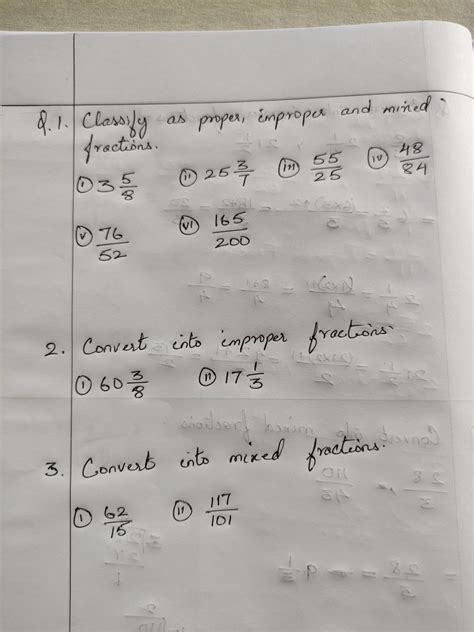 Q.1. Classify as proper, improper and mixed
fractions.
(i) 3 5/8 (ii) 25 3/7 (iii) 55/25 (iv) 48/84
(v) 76/52 (vi) 165/200
2. Convert into improper fractions.
(i) 60 3/8 (ii) 17 1/3
3. Convert into mixed fractions.
(i) 62/15 (ii) 117/101